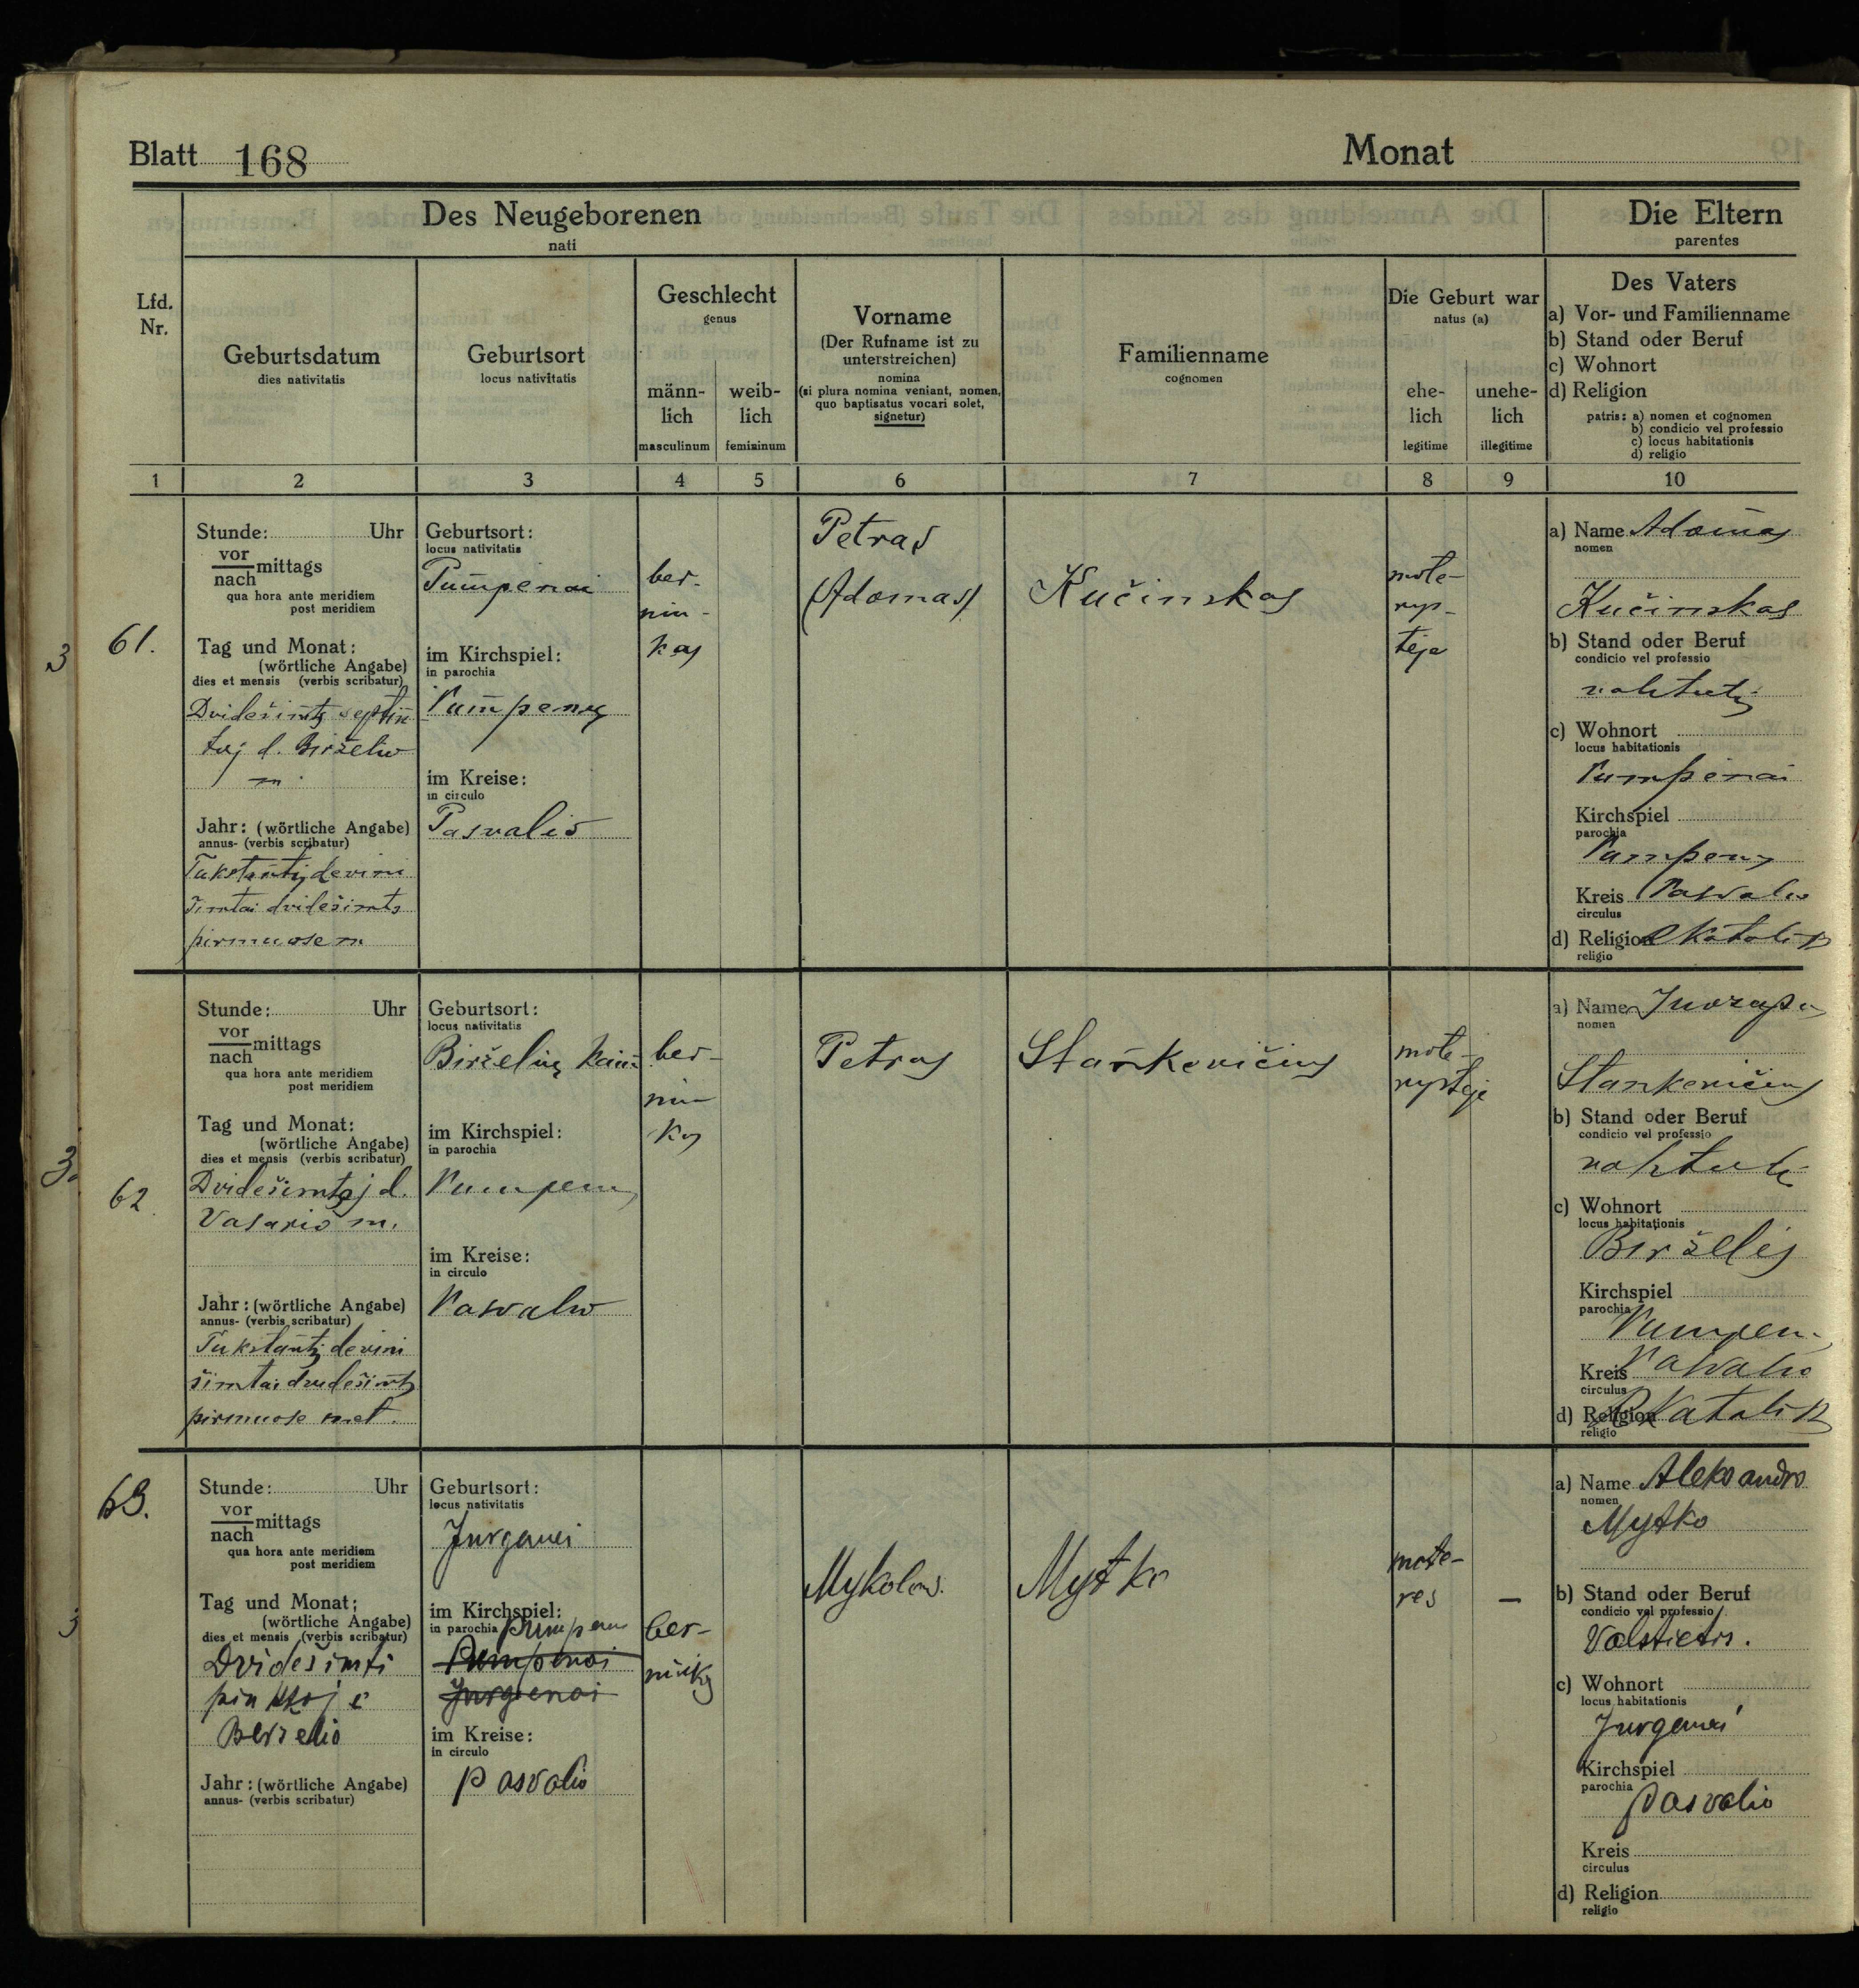 Blatt 168
Monat
Des Neugeborenen
nati
Die Eltern
parentes
Lfd.
Nr.
Geburtsdatum
dies nativitatis
Geburtsort
locus nativitatis
Geschlecht
genus
männ-
lich
masculinum
weib-
lich
femininum
Vorname
(Der Rufname ist zu
unterstreichen)
nomina
(si plura nomina veniant, nomen,
quo baptisatus vocari solet,
signetur)
Familienname
cognomen
Die Geburt war
natus (a)
ehe-
lich
legitime
unehe-
lich
illegitime
Des Vaters
a) Vor- und Familienname
b) Stand oder Beruf
c) Wohnort
d) Religion
patris: a) nomen et cognomen
b) condicio vel professio
c) locus habitationis
d) religio
1 2 3 4 5 6 7 8 9 10
3
61.
Stunde: Uhr
vor
nach mittags
qua hora ante meridiem
post meridiem
Tag und Monat:
(wörtliche Angabe)
dies et mensis (verbis scribatur)
Dvidešimtą septin
toj d. Birželio
m.
Jahr: (wörtliche Angabe)
annus- (verbis scribatur)
Tukstantį devini
šimtai dvidešimts
pirmuose m
Geburtsort:
locus nativitatis
Pumpenai
im Kirchspiel:
in parochia
Pumpenų
im Kreise:
in circulo
Pasvalio
ber-
nin-
kas
Petras
(Adomas)
Kučinskas
mote-
rys-
tėje
a) Name Adomas
nomen
Kučinskas
b) Stand oder Beruf
condicio vel professio
c) Wohnort
locus habitationis
Pumpenai
Kirchspiel
parochia
Pumpenų
Kreis Pasvalio
circulus
d) Religion R Katalik
religio
3
62
Stunde: Uhr
vor
nach mittags
qua hora ante meridiem
post meridiem
Tag und Monat:
(wörtliche Angabe)
dies et mensis (verbis scribatur)
Dvidešimtoj d.
Vasario m.
Jahr: (wörtliche Angabe)
annus- (verbis scribatur)
Tukstantį devini
šimtai dvidešimtų
pirmuose met.
Geburtsort:
locus nativitatis
Birželių kaim
im Kirchspiel:
in parochia
Pumpenų
im Kreise:
in circulo
Pasvalio
ber-
nin-
kas
Petras
Stankevičius
mote-
rystėje
a) Name Juozapas
nomen
Stankevičius
b) Stand oder Beruf
condicio vel professio
c) Wohnort
locus habitationis
Birželis
Kirchspiel
parochia
Pumpenų
Kreis Pasvalio
circulus
d) Religion R Katalik
religio
3
63.
Stunde: Uhr
vor
nach mittags
qua hora ante meridiem
post meridiem
Tag und Monat:
(wörtliche Angabe)
dies et mensis (verbis scribatur)
Dvidešimti
pinktoje
Berželio
Jahr: (wörtliche Angabe)
annus- (verbis scribatur)
Geburtsort:
locus nativitatis
Jurgenai
im Kirchspiel:
in parochia Pumpenu
Pumpenai
Jurgenai
im Kreise:
in circulo
Pasvalio
ber-
ninkas
Mykolas.
Mytko
mote-
res
–
a) Name Aleksandro
nomen
Mytko
b) Stand oder Beruf
condicio vel professio
Valstietis.
c) Wohnort
locus habitationis
Jurgenai
Kirchspiel
parochia
Pasvalio
Kreis
circulus
d) Religion
religio